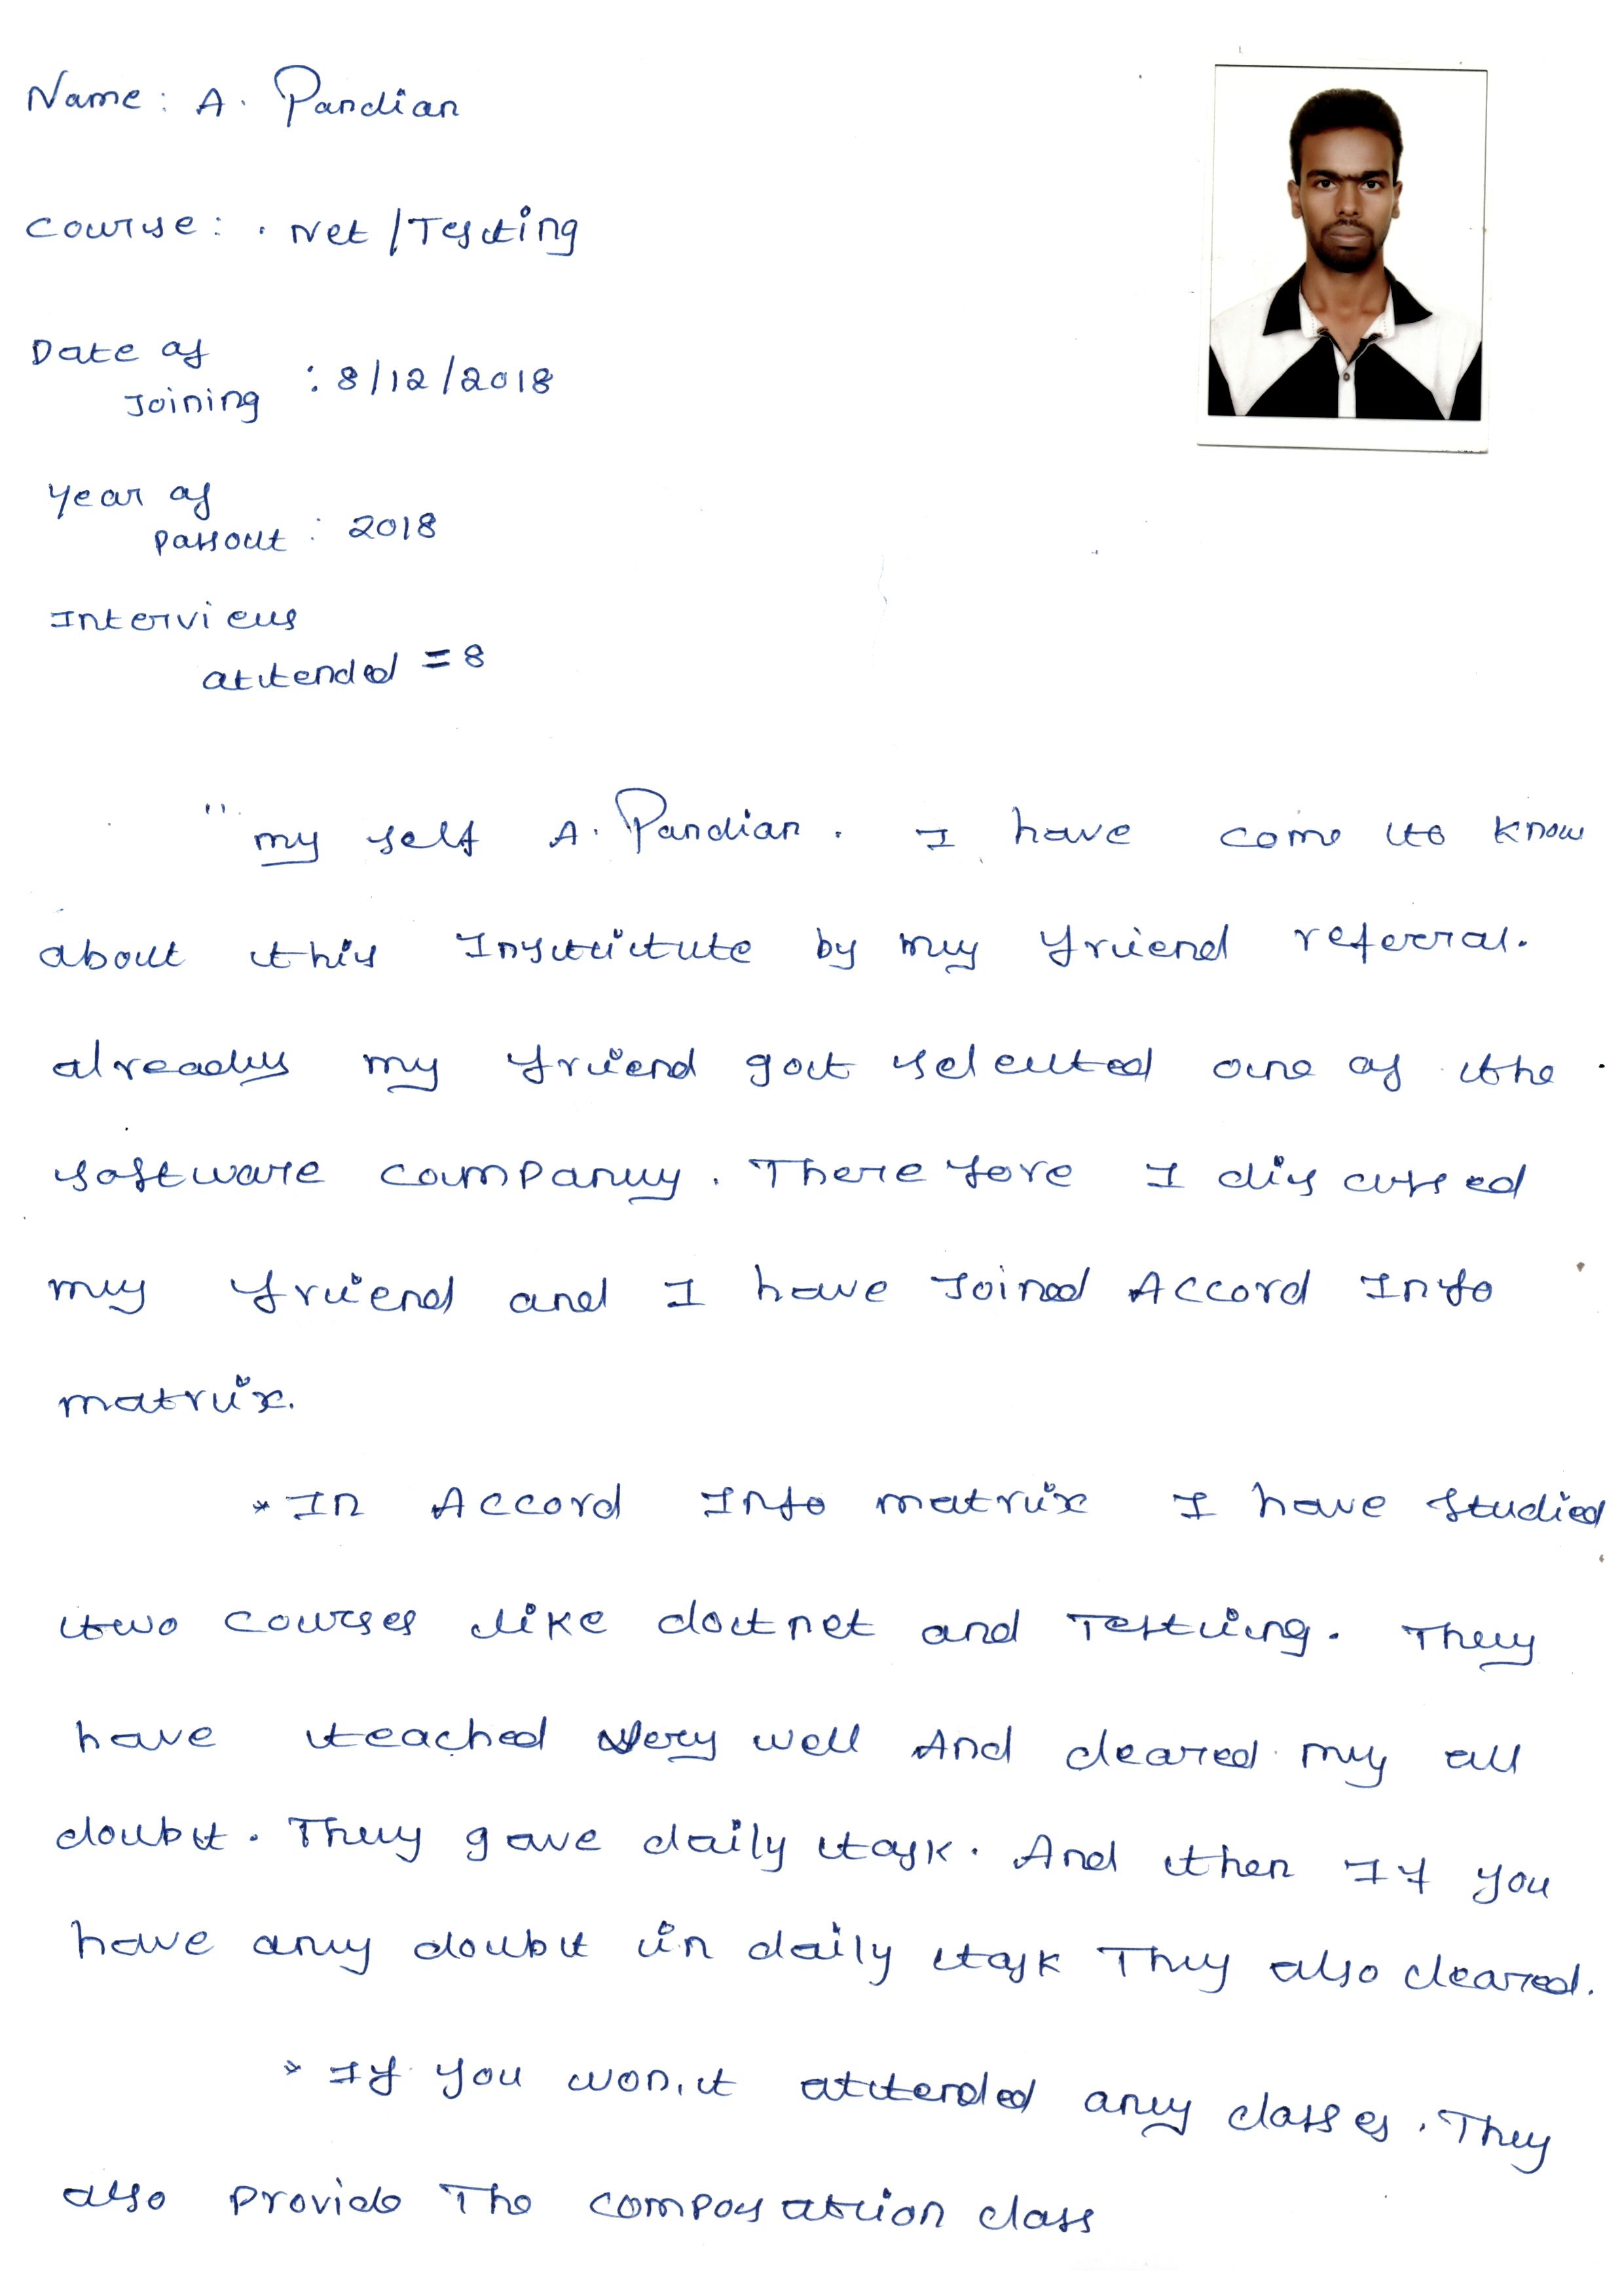 Name : A. Pandian
Course : . Net / Testing
Date of
Joining : 8/12/2018
Year of
Passout : 2018
Interviews
attended = 8
" my self A. Pandian. I have come to know
about this Institute by my friend referral.
already my friend got selected one of the
software company. Therefore I discussed
my friend and I have Joined Accord Info
matrix.
* In Accord Info matrix I have studied
two courses like dotnet and Testing. They
have teached very well And cleared my all
doubt. They gave daily task. And then If you
have any doubt in daily task They also cleared.
* If you won't attended any classes. They
also provide The composation class